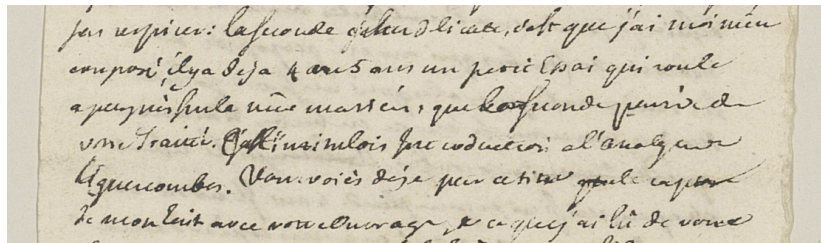 respirer: la seconde plus delicate, c'est que j'ai moi meme
composé il y a deja 4 ou 5 ans un petit Essai qui roule
a peu près sur la même matiere, que la seconde partie de
votre Traité. Introduction a l'Analyse des
lignes courbes. Vous voiés deja par ce titre que le rapport
de mon Ecrit avec votre ouvrage, & ce que j'ai lû de votre